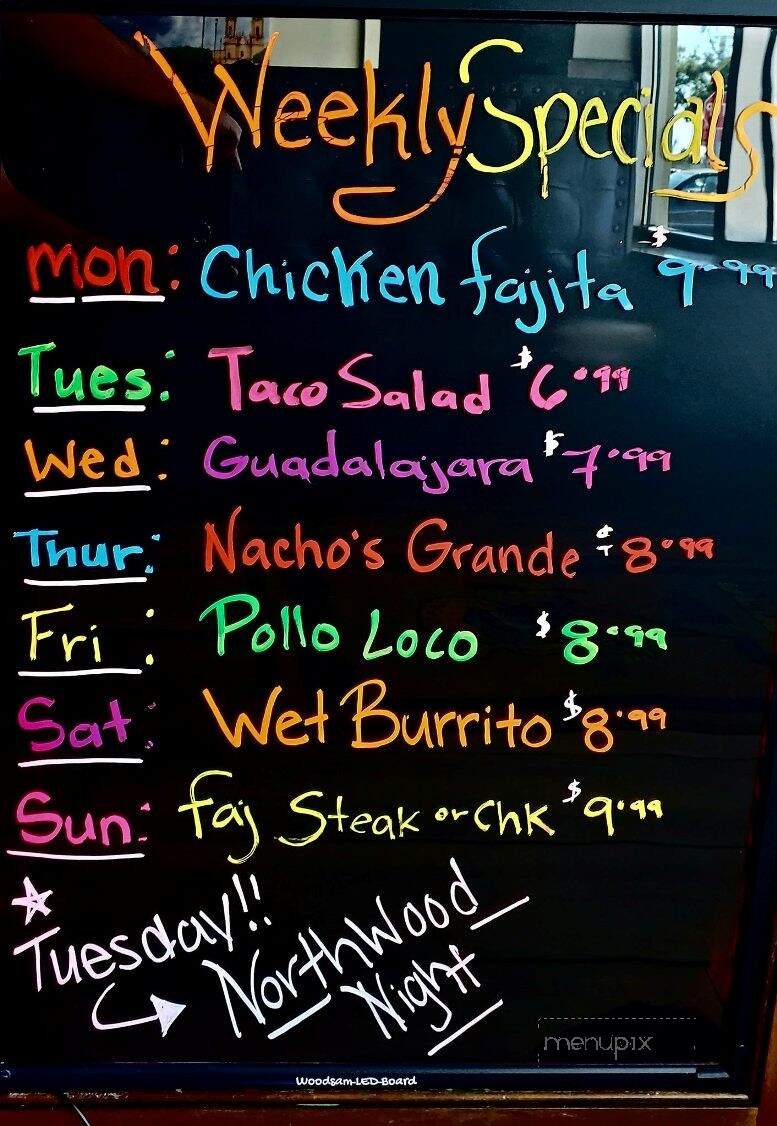 Weekly Specials
mon: Chicken fajita $9.99
Tues: Taco Salad $6.99
Wed: Guadalajara $7.99
Thur: Nacho's Grande $8.99
Fri: Pollo Loco $8.99
Sat: Wet Burrito $8.99
Sun: faj Steak or Chk $9.99
Tuesday!!
NorthWood
Night
menupix
Woodsam-LED-Board